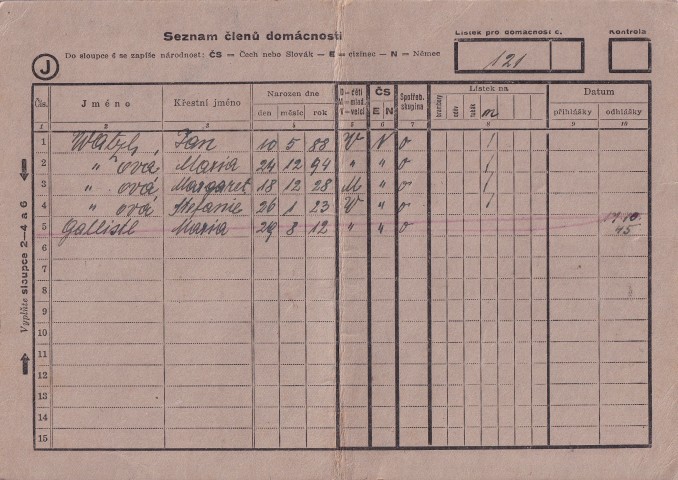 Seznam členů domácnosti
Lístek pro domácnost č.
Kontrola
J
Do sloupce 6 se zapíše národnost: ČS — Čech nebo Slovák — E — cizinec — N — Němec
121
Čís.
Jméno
Křestní jméno
Narozen dne
den měsíc rok
D — děti
M — mlad.
V — velcí
ČS
E N
Spotřeb. skupina
Lístek na
brambory
oděv
tabák
m
Datum
přihlášky odhlášky
1 2 3 4 5 6 7 8 9 10
1 Watzl, Jan 10 5 88 V N o /
2 " ová Maria 24 12 94 " " o /
3 " ová Margaret 18 12 28 M " o /
4 " ová Stefanie 26 1 23 V " o /
5 Gallistl Maria 29 8 12 " " o
45
6
7
8
9
10
11
12
13
14
15
Vyplňte sloupce 2–4 a 6